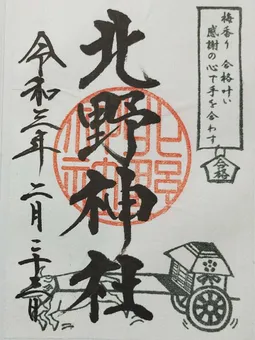 梅香り 合格叶い
感謝の心で手を合わす
合格
北野神社
令和三年 二月二十三日